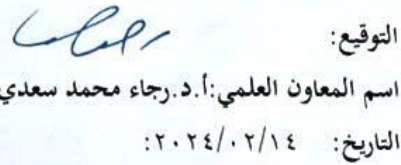 التوقيع:
اسم المعاون العلمي:أ.د.رجاء محمد سعدي
التاريخ: ٢٠٢٤/٠٢/١٤: